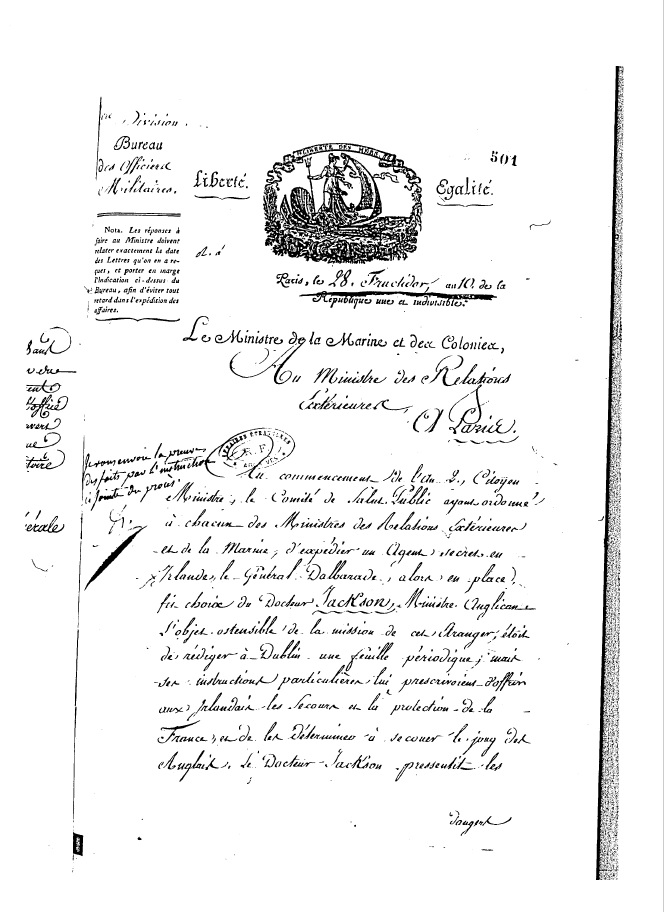 Division
Bureau
des Officiers
Militaires.
501
LIBERTÉ DES MERS
Liberté.
Egalité.
NOTA. Les réponses à
faire au Ministre doivent
relater exactement la date
des Lettres qu'on en a re-
çues, et porter en marge
l'indication ci-dessus du
Bureau, afin d'éviter tout
retard dans l'expédition des
affaires.
Paris, le 28. Fructidor, an 10. de la
République une et indivisible.
Le Ministre de la Marine et des Colonies,
Au Ministre des Relations
Extérieures
A Paris.
Je vous envoie la preuve
des faits par l'instruction
ci jointe du procès
R.F
Au commencement de l'an 2, Citoyen
Ministre, le Comité de Salut Public ayant ordonné
à chacun des Ministres des Relations Extérieures
et de la Marine, d'expédier un Agent secret en
Irlande, le Général Dalbarade, alors en place,
fit choix du Docteur Jackson, Ministre Anglican
L'objet ostensible de la mission de cet étranger, étoit
de rédiger à Dublin une feuille périodique; mais
ses instructions particulières lui prescrivoient d'offrir
aux Irlandais les secours et la protection de la
France, et de les déterminer à secouer le joug des
Anglais. Le Docteur Jackson pressentit les
érale